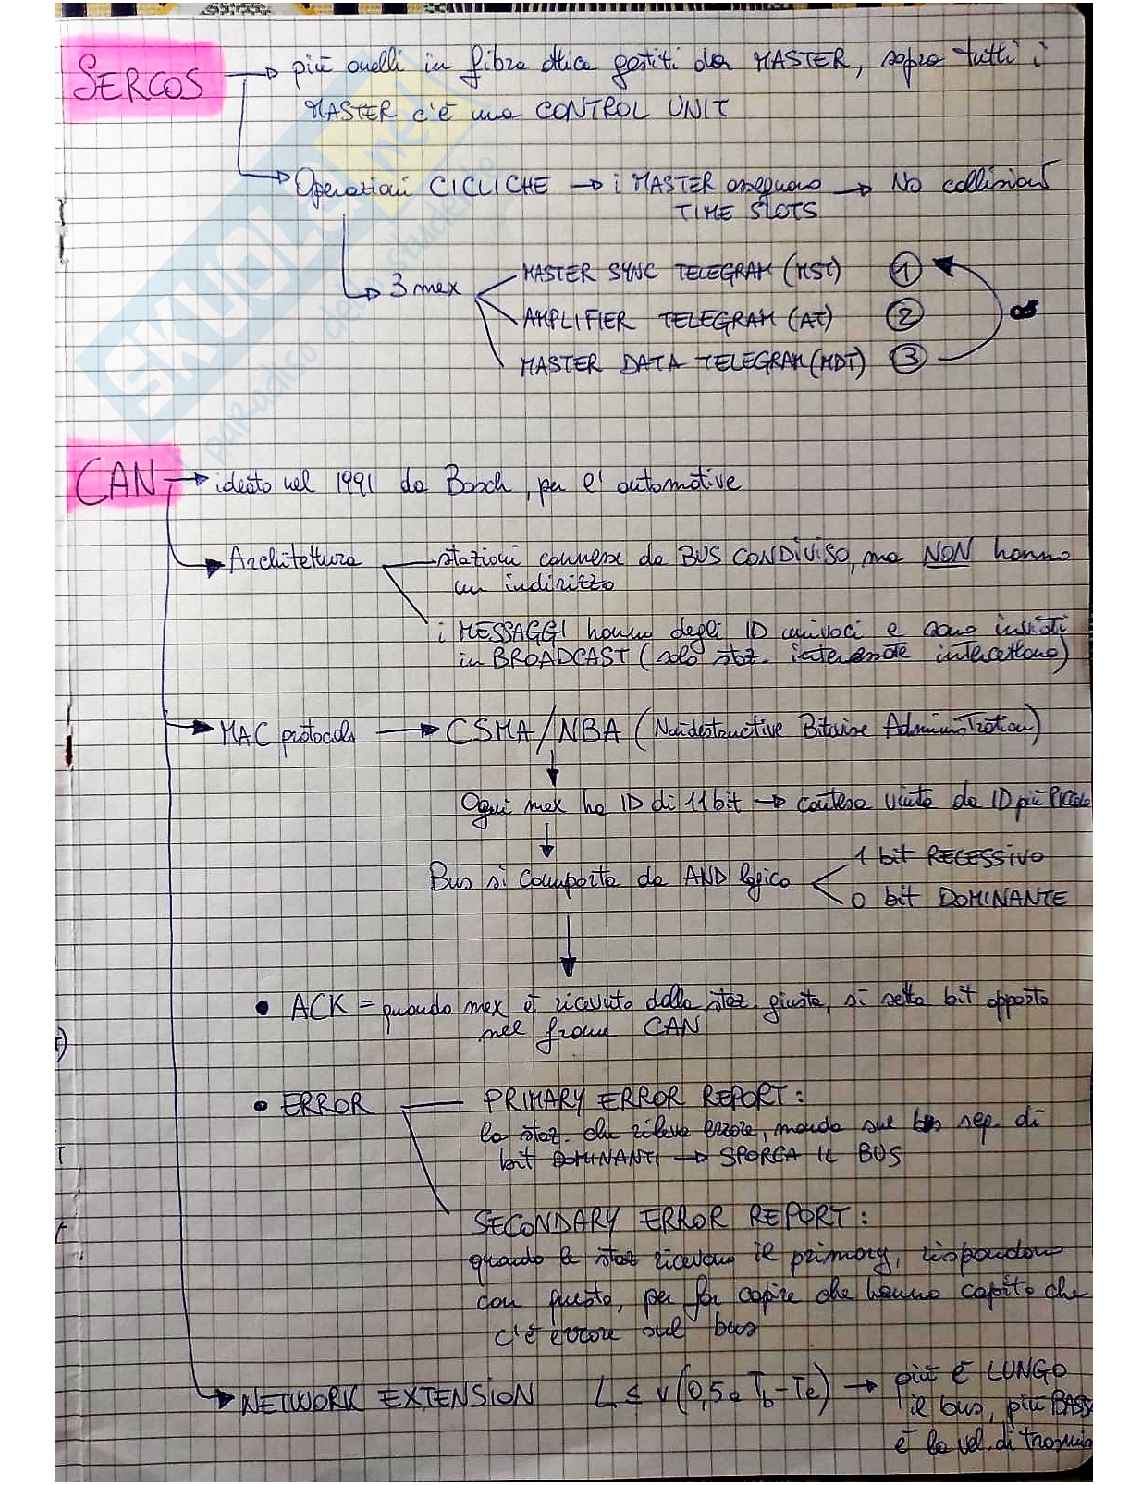 SERCOS → più anelli in fibra ottica gestiti da MASTER, sopra tutti i
MASTER c'è una CONTROL UNIT
Operazioni CICLICHE → i MASTER assegnano → No collisioni
TIME SLOTS
3 mex
MASTER SYNC TELEGRAM (MST) 1
AMPLIFIER TELEGRAM (AT) 2
MASTER DATA TELEGRAM (MDT) 3
SKUOLA.net
paradiso dello studente
CAN → ideato nel 1991 da Bosch, per l'automotive
Architettura
stazioni connesse da BUS CONDIVISO, ma NON hanno
un indirizzo
i MESSAGGI hanno degli ID univoci e sono inviati
in BROADCAST (solo staz. interessate intercettano)
MAC protocols → CSMA/NBA (Nondestructive Bitwise Administration)
Ogni mex ha ID di 11 bit → contesa vinta da ID più PICCOLO
Bus si comporta da AND logico
1 bit RECESSIVO
0 bit DOMINANTE
• ACK = quando mex è ricevuto dalla staz. giusta, si setta bit opposto
nel frame CAN
• ERROR
PRIMARY ERROR REPORT:
la staz. che rileva errore, manda sul bus seq. di
bit DOMINANTI → SPORCA IL BUS
SECONDARY ERROR REPORT:
quando le staz ricevono il primary, rispondono
con questo, per far capire che hanno capito che
c'è errore sul bus
NETWORK EXTENSION L ≤ v(0,5 • Tb - Te) → più È LUNGO
il bus, più
è la vel. di